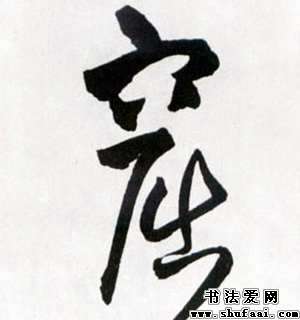 窟
书法爱网
www.shufaai.com